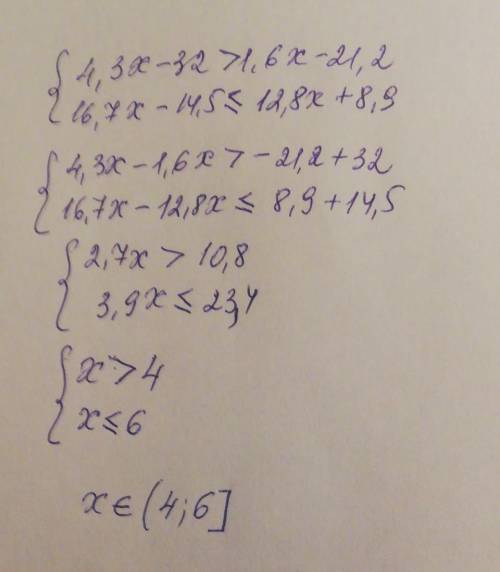 { 4,3x - 32 > 1,6x - 21,2
16,7x - 14,5 ≤ 12,8x + 8,9
{ 4,3x - 1,6x > - 21,2 + 32
16,7x - 12,8x ≤ 8,9 + 14,5
{ 2,7x > 10,8
3,9x ≤ 23,4
{ x > 4
x ≤ 6
x ∈ (4; 6]